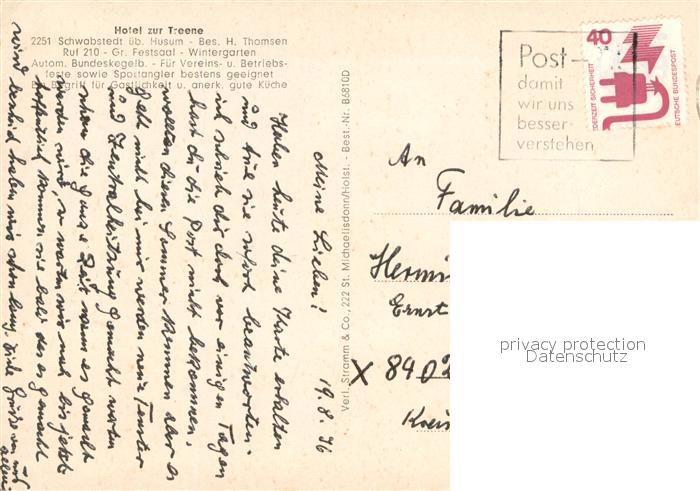 Hotel zur Treene
2251 Schwabstedt üb. Husum - Bes. H. Thomsen
Ruf 210 - Gr. Festsaal - Wintergarten
Autom. Bundeskegelb. - Für Vereins- u. Betriebs-
feste sowie Sportangler bestens geeignet
Ein Begriff für Gastlichkeit u. anerk. gute Küche
Meine Lieben! 19.8.76
Haben heute deine Karte erhalten
und will sie sofort beantworten.
ich schrieb dir doch vor einigen Tagen
hast du die Post nicht bekommen,
wollten diesen Sommer kommen aber es
geht nicht bei mir werden neue Fenster
und Zentralheizung gemacht worden
schon die ganze Zeit wann es gemacht
werden wird, so warten wir noch bis jetzt
hoffentlich kommen sie bald das es gemacht
wird haben wir schon lang. viele Grüße von uns
allen
Verl. Stramm & Co., 222 St. Michaelisdonn/Holst. - Best.-Nr. B6810D
Post-
damit
wir uns
besser
verstehen
40
JEDERZEIT SICHERHEIT
DEUTSCHE BUNDESPOST
An
Familie
Hermi
Ernst
X 8402
Kreis
privacy protection
Datenschutz